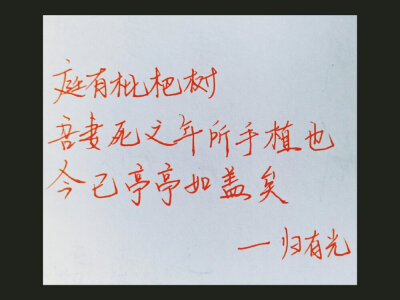 庭有枇杷树
吾妻死之年所手植也
今已亭亭如盖矣
一归有光